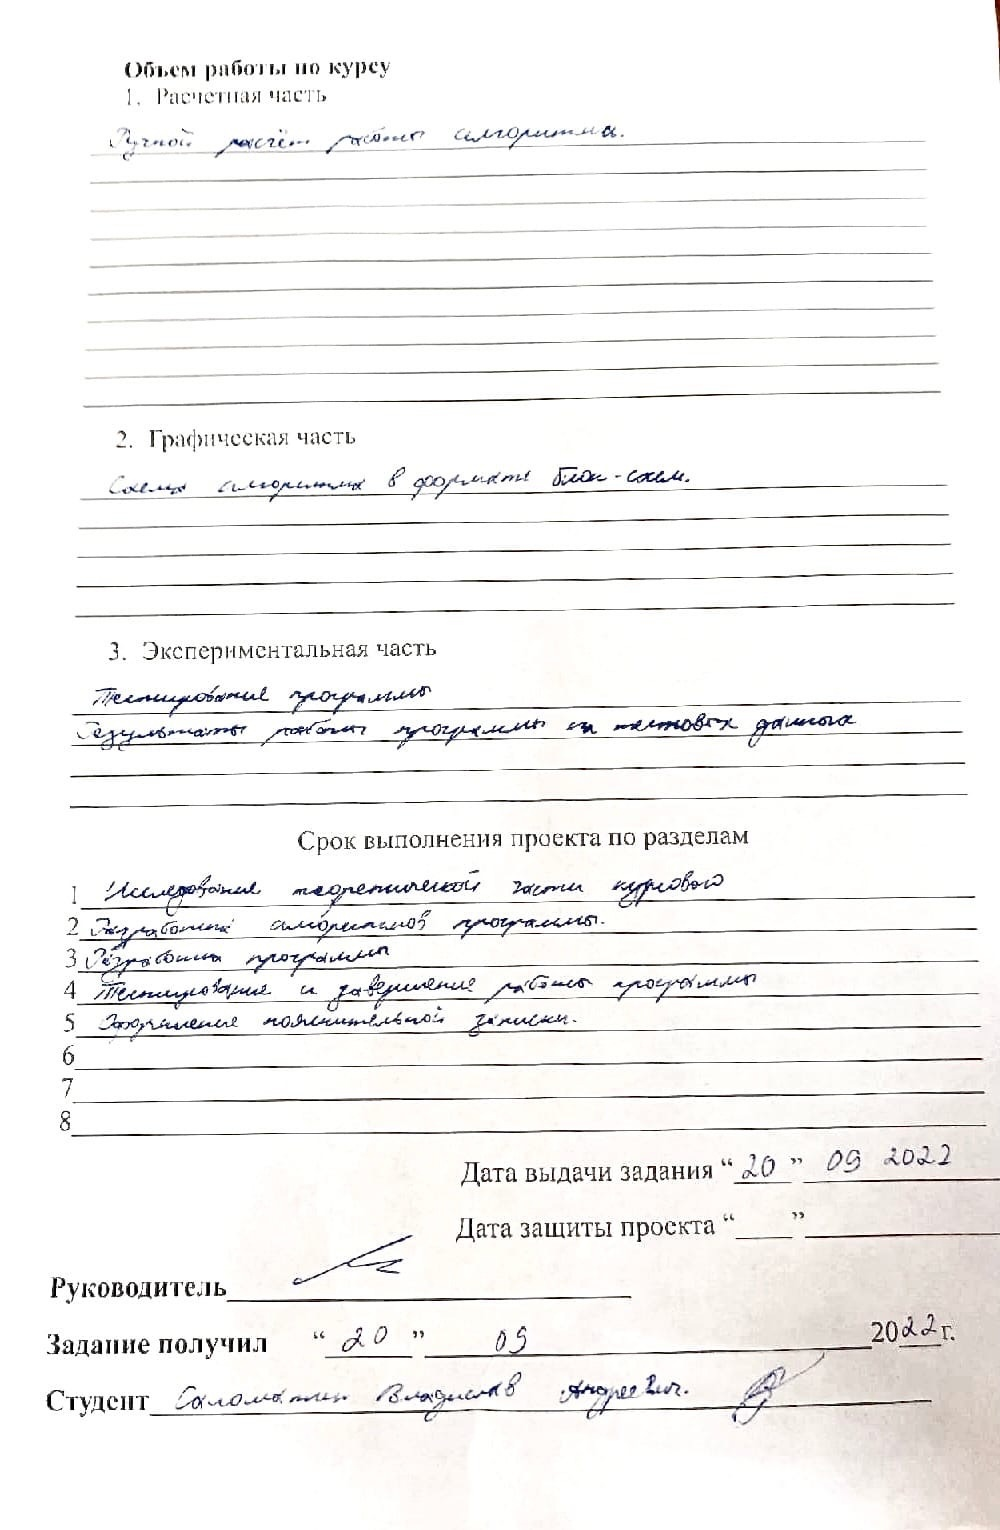 Объем работы по курсу
1. Расчетная часть
Ручной расчёт работы алгоритма.
2. Графическая часть
Схема алгоритма в формате блок-схем.
3. Экспериментальная часть
Тестирование программы
Результаты работы программы на тестовых данных
Срок выполнения проекта по разделам
1 Исследование теоретической части курсового
2 Разработка алгоритмов программы.
3 Разработка программы
4 Тестирование и завершение работы программы
5 Оформление пояснительной записки.
6
7
8
Дата выдачи задания “20” 09 2022
Дата защиты проекта “ ”
Руководитель
Задание получил “20” 09 2022г.
Студент Саломатин Владислав Андреевич.